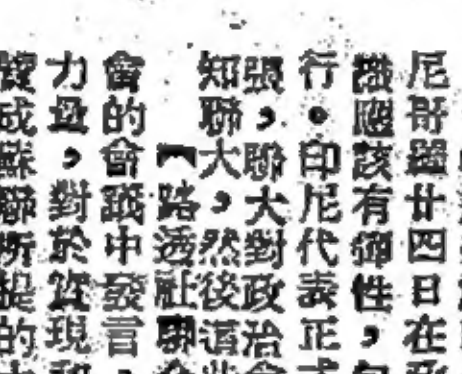 尼哥廿四日在
議應該有彈性，包
行。印尼代表正式
張，聯大對政治會
知聯大，然後
【路透社聯
會的會議中發言，
力量，對於實現和
成蘇聯所提的